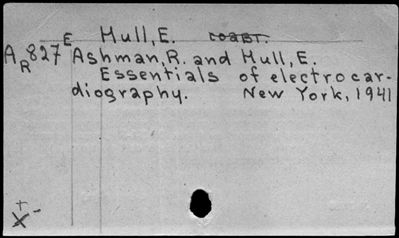 E Hull, E. coabt.
AR827 Ashman, R. and Hull, E.
Essentials of electrocar-
diography. New York, 1941
+
X-